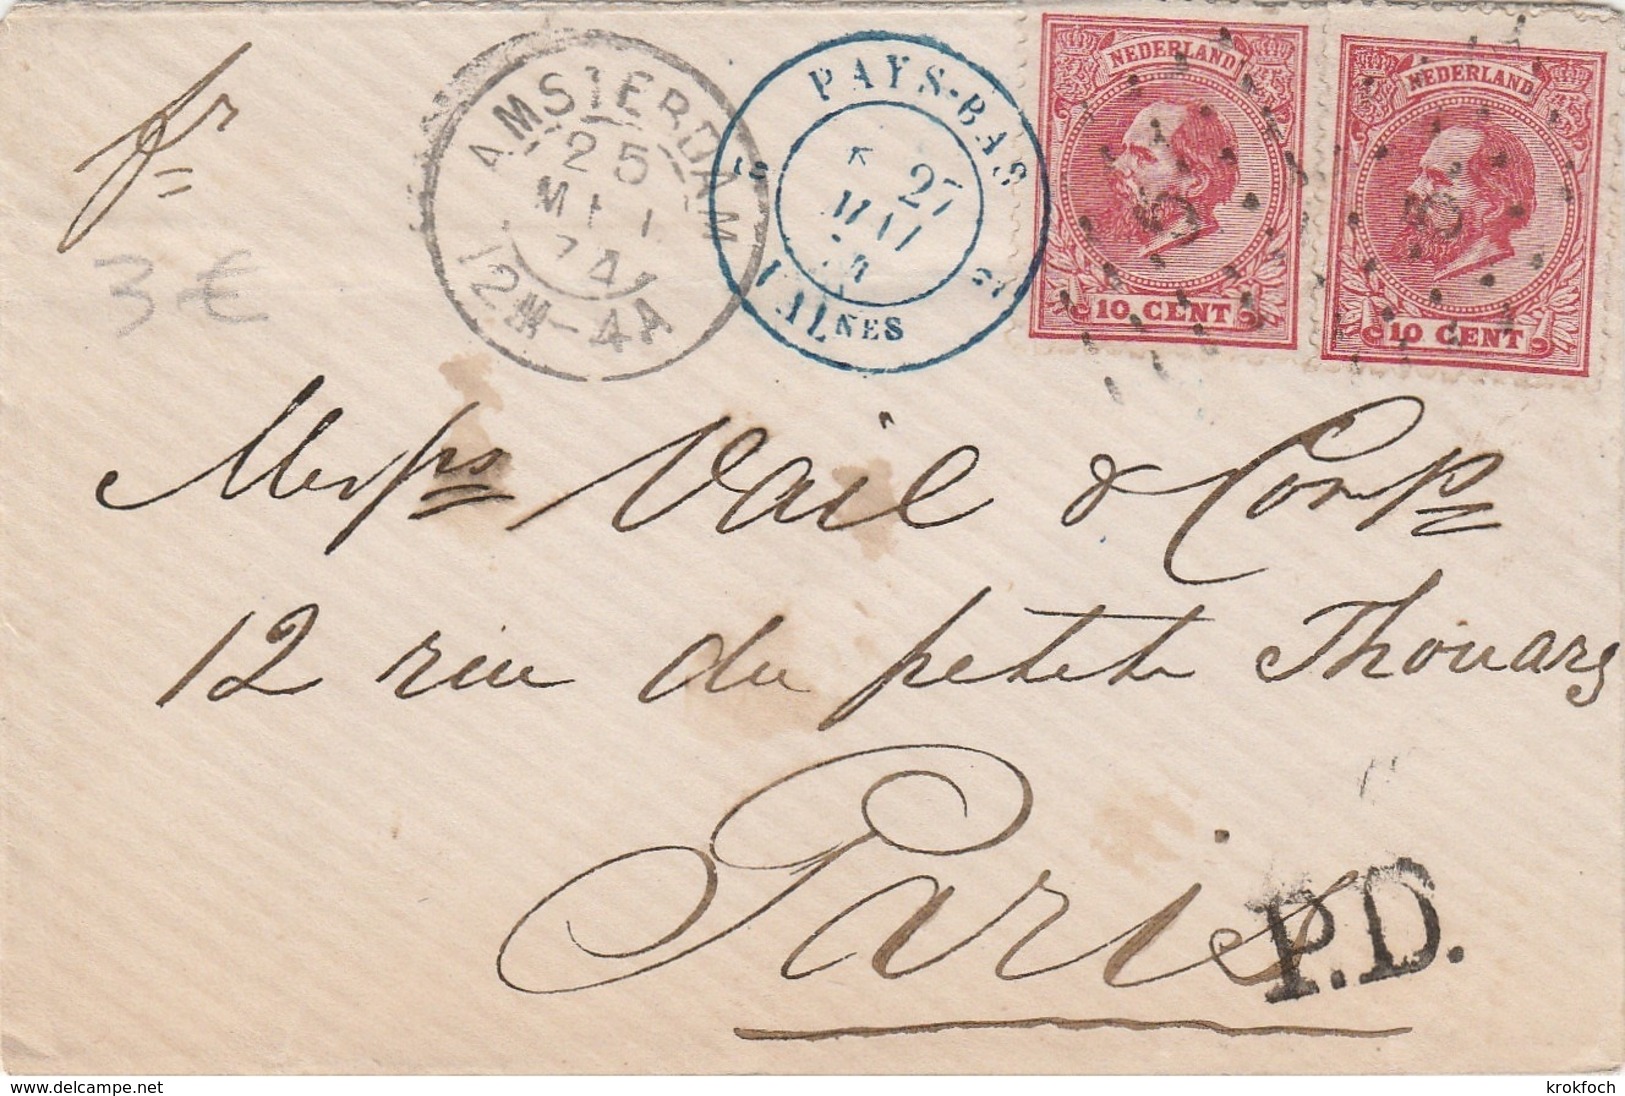 fr
3 €
AMSTERDAM
25
MEI
74
12M-4A
PAYS-BAS
27
MAI
VALNES
NEDERLAND
5
10 CENT
NEDERLAND
5
10 CENT
Messrs Vail & Comp
12 rue du petit Thouars
Paris
P.D.
delcampe.net
krokfoch